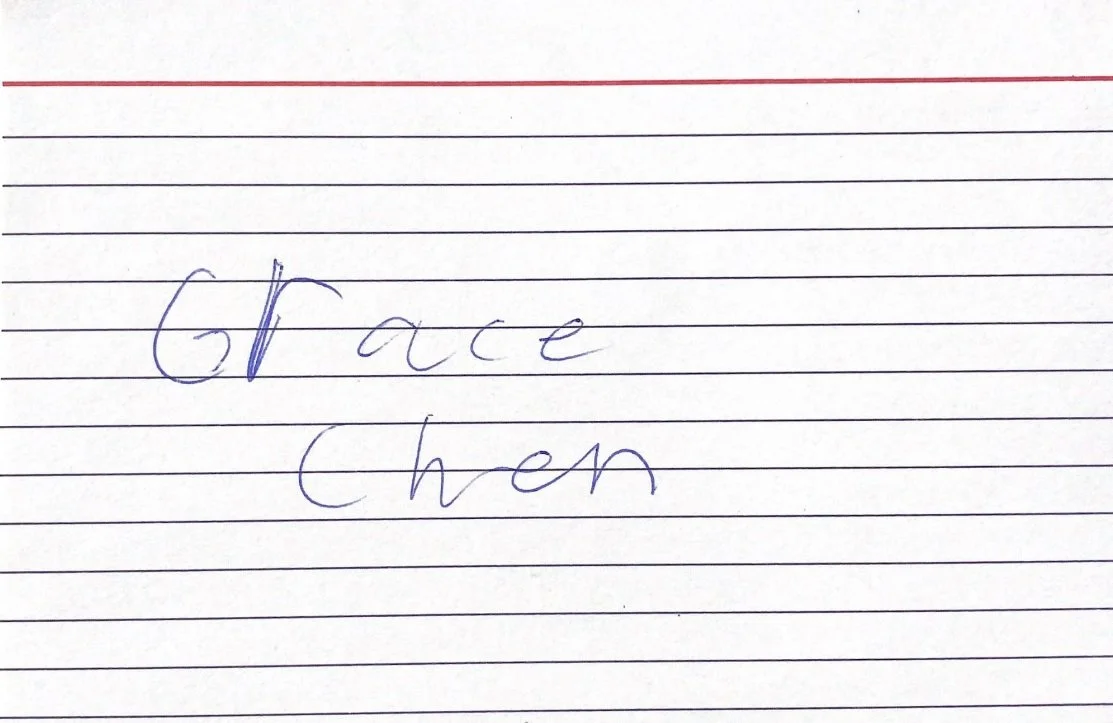 Grace
Chen